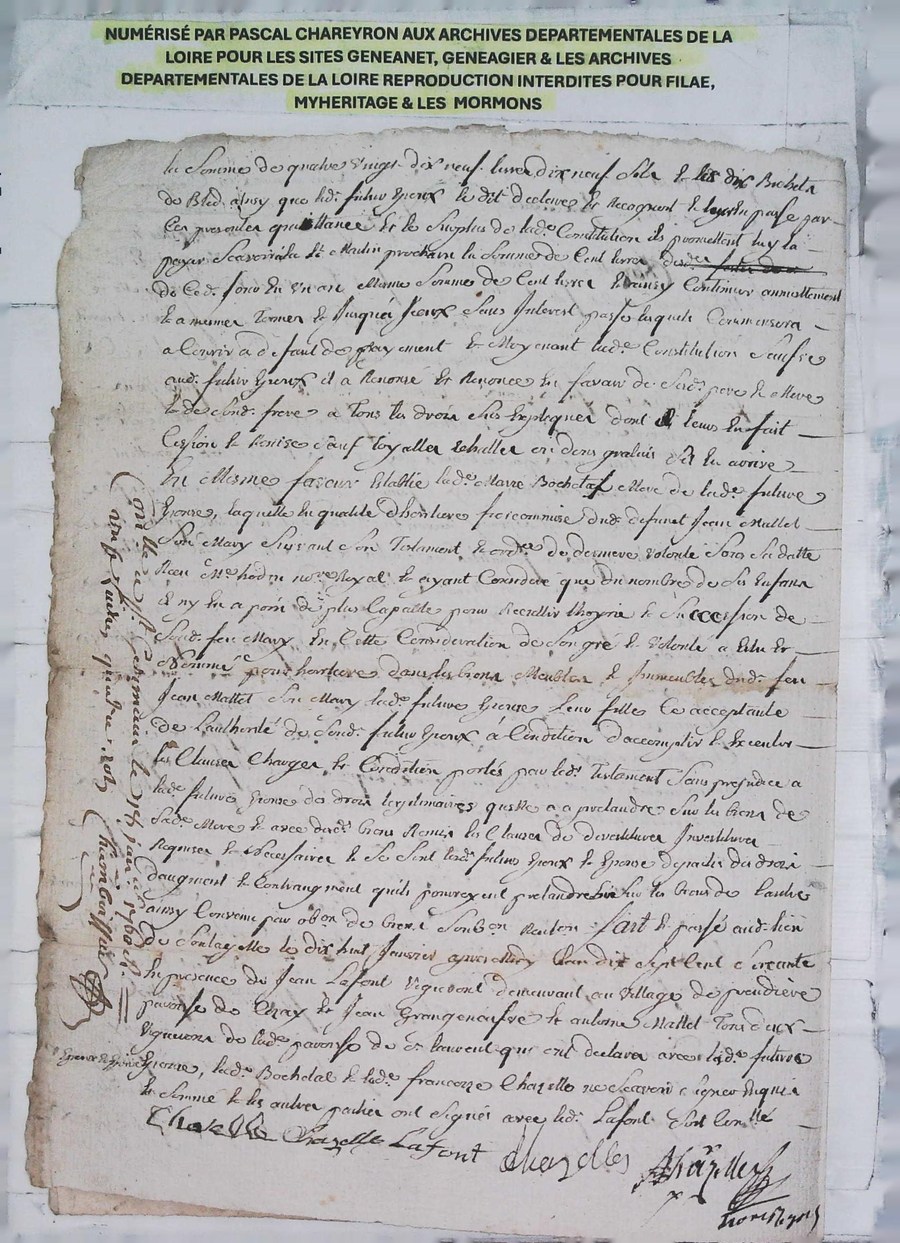 NUMÉRISÉ PAR PASCAL CHAREYRON AUX ARCHIVES DEPARTEMENTALES DE LA
LOIRE POUR LES SITES GENEANET, GENEAGIER & LES ARCHIVES
DEPARTEMENTALES DE LA LOIRE REPRODUCTION INTERDITES POUR FILAE,
MYHERITAGE & LES MORMONS
la Somme de quatre vingt dix neuf livre dix neuf Sols & les dix Bichets
de Bled ainsy que led. futur Epoux le dit declare & Recognoit & luy en passe par
Ces presentes quittance Et le Surplus de lad.e Constitution ils promettent luy la
payer Scavoir a la St Martin prochain la Somme de Cent livres
de Ced. jour En Un an Mesme Somme de Cent livres & ainsy Continuer annuellement
a mesmes Termes & Jusqu'a Iceux Sans Interest passé lesquels Commensera
a Courir a defaut de payement & Moyenant lad.e Constitution
aud. futur Epoux il a Renoncé Et Renonce En faveur de Sesd. pere & Mere
& de Sond. frere a Tous les droits dont Il leurs En fait
Cession & Remise Sauf Loyalle Eschutte ou dons gratuis S'il En arrive
En Mesme faveur Establie lad.e Marie Bochetal Mere de lad.e future
Epouse, laquelle En qualité d'heritiere fideicommise dud. defunt Jean Mallet
Son Mary Suivant Son Testament & ord.re de derniere volonté Sous Sa datte
Receu M.e hodin no.re Royal & ayant Considéré que du nombre de Ses Enfans
Il n'y En a point de plus Capable pour Receullir l'hoyrie & Succession de
Sond. feu Mary En Cette Consideration de Son gré & Volonté a Eslu Et
Nommé pour heritiere dans les biens Meubles & Immeubles dud. feu
Jean Mallet Son Mary lad.e future Epouse Leur fille Ce acceptante
de L'authorité de Sond. futur Epoux a Condition d'accomplir & Executer
les Clauses Charges & Condition portés par led. Testament Sans prejudice a
lad.e future Epouse des droits legitimaires qu'elle a a pretandre Sur les biens de
Sad.e Mere & avec desd. biens Remis les Clauses de devestiture Investiture
Requises & Necessaires & Se Sont lesd. futurs Epoux & Epouse departis des droits
d'augment & Contraugment qu'ils pourroyent pretandre Sur les biens de l'autre
ainsy Convenu par ob.on de biens Soub.on Renon.on fait & passé aud. lieu
de le dix huit Janvier apres Midy L'an dix Sept Cent Soixante
En presence de Jean Lafont Vigneront demeurant au Village de prendiere
paroisse de & Jean Grangeneufve & antoine Mallet Tous deux
Vignerons de lad.e paroisse de St laurent qui ont declaré avec lad.e future
Epouse, lad.e Bochetal & lad.e francoise Chazelle ne Scavoir Signer Enquis
& Somme & les autres parties ont Signés avec led. Lafont
Chazelle Chazelle Lafont Chazelles Chazelles
Con.llé a St Germain le Janv. 1760
quatre